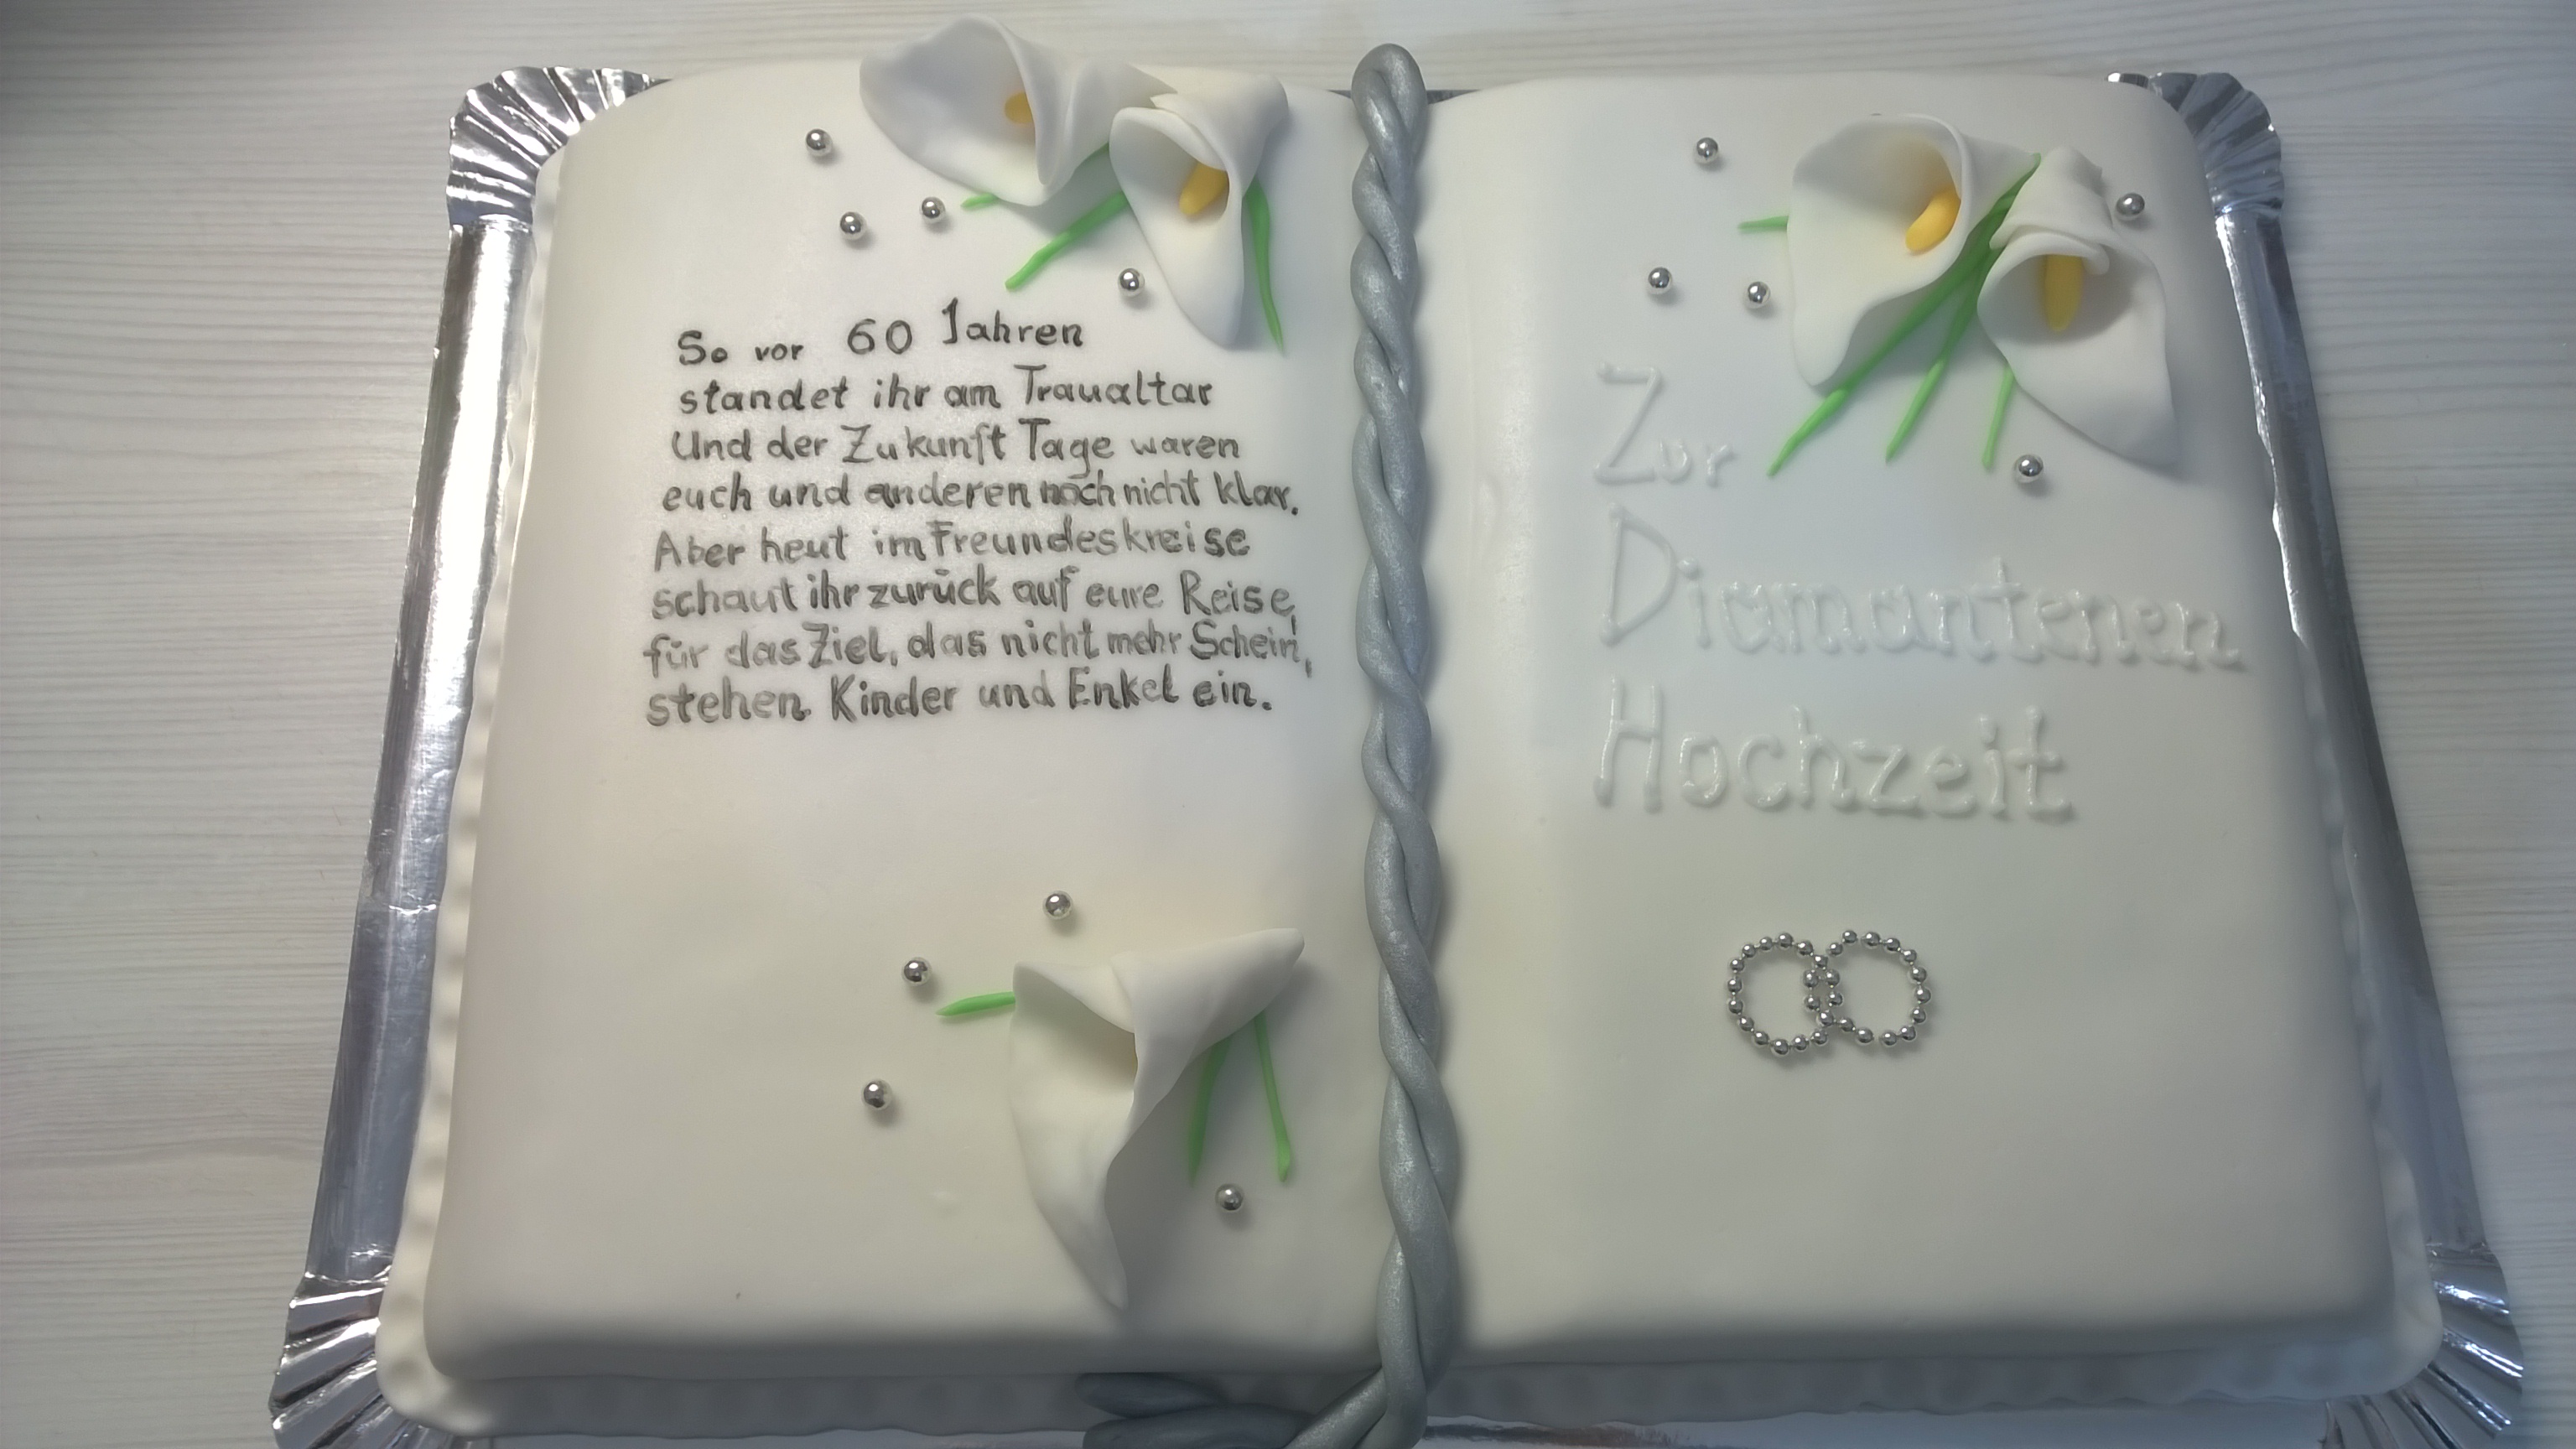 So vor 60 Jahren
standet ihr am Traualtar
Und der Zukunft Tage waren
euch und anderen noch nicht klar.
Aber heut im Freundeskreise
schaut ihr zurück auf eure Reise,
für das Ziel, das nicht mehr Schein,
stehen Kinder und Enkel ein.
Zur
Diamantenen
Hochzeit